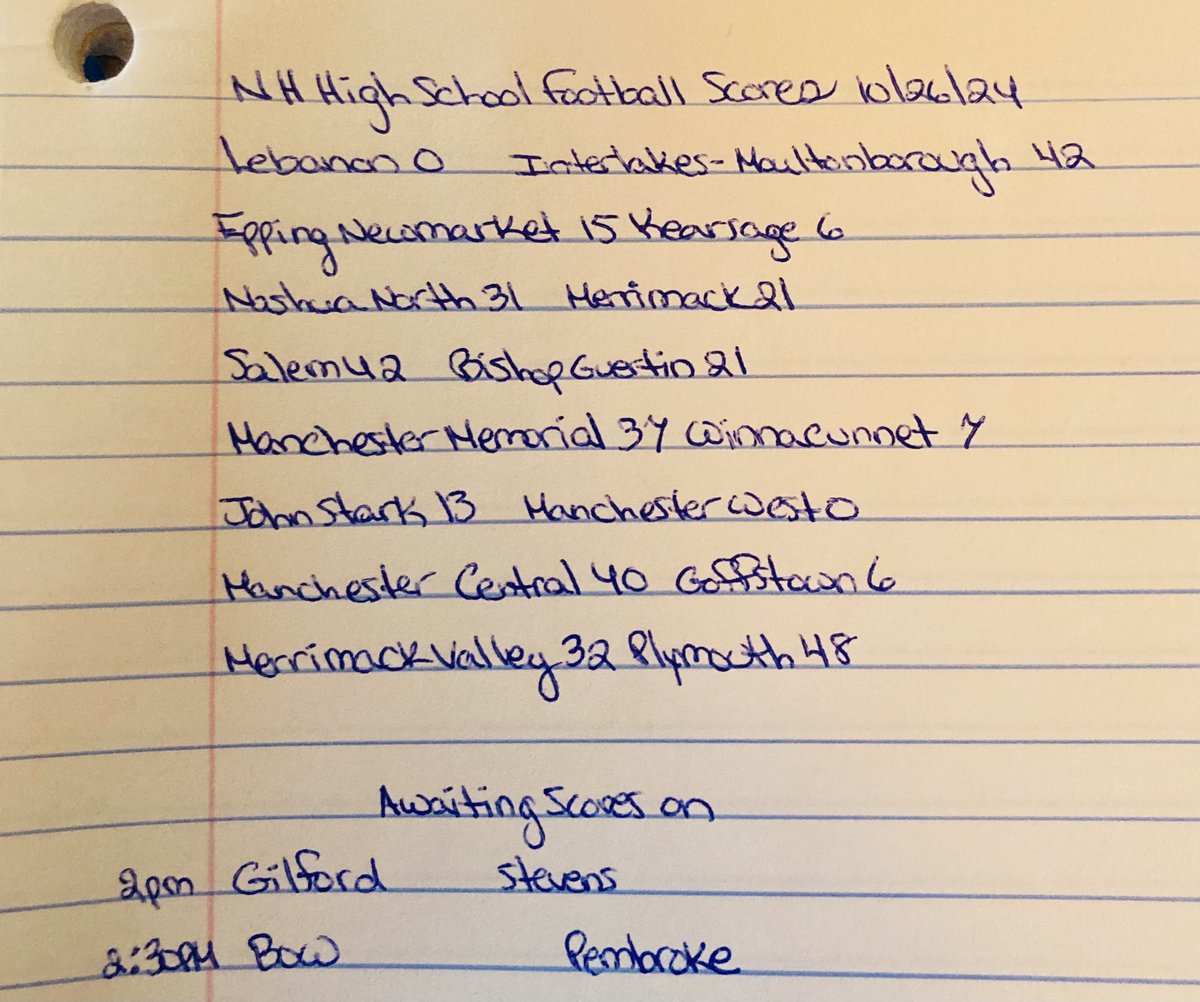 NH High School Football Scores 10/26/24
Lebanon 0 Interlakes-Moultonborough 42
Epping Newmarket 15 Kearsage 6
Nashua North 31 Merrimack 21
Salem 42 Bishop Guertin 21
Manchester Memorial 37 Winnacunnet 7
John Stark 13 Manchester West 0
Manchester Central 40 Goffstown 6
Merrimack Valley 32 Plymouth 48
Awaiting Scores on
2pm Gilford Stevens
2:30PM Bow Pembroke